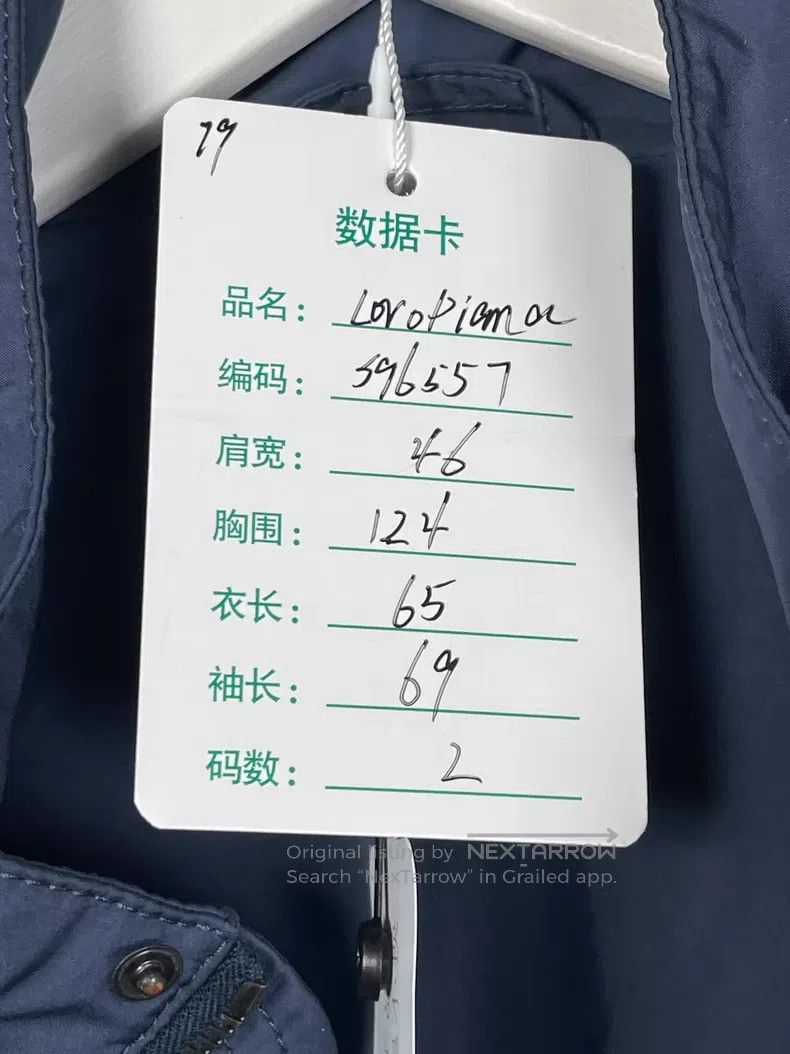 79
数据卡
品名： LoroPiana
编码： 596557
肩宽： 46
胸围： 124
衣长： 65
袖长： 69
码数： 2
Original listing by NEXTARROW
Search “NexTarrow” in Grailed app.